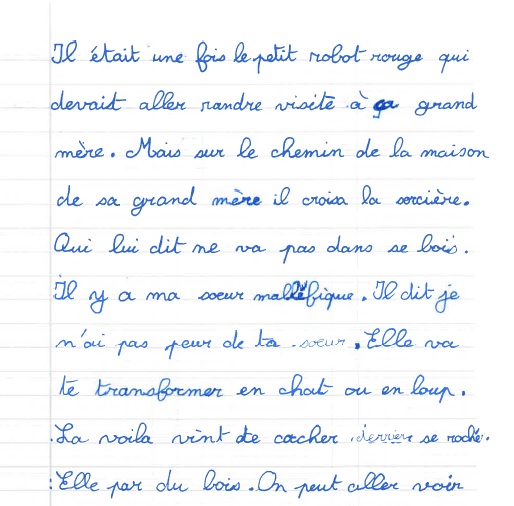 Il était une fois le petit robot rouge qui
devait aller randre visite à ça grand
mère. Mais sur le chemin de la maison
de sa grand mère il croisa la sorcière.
Qui lui dit ne va pas dans se bois.
Il y a ma soeur malléfique. Il dit je
n'ai pas peur de ta soeur. Elle va
te transformer en chat ou en loup.
La voila vint te cacher derrier se roché.
Elle par du bois. On peut aller voir